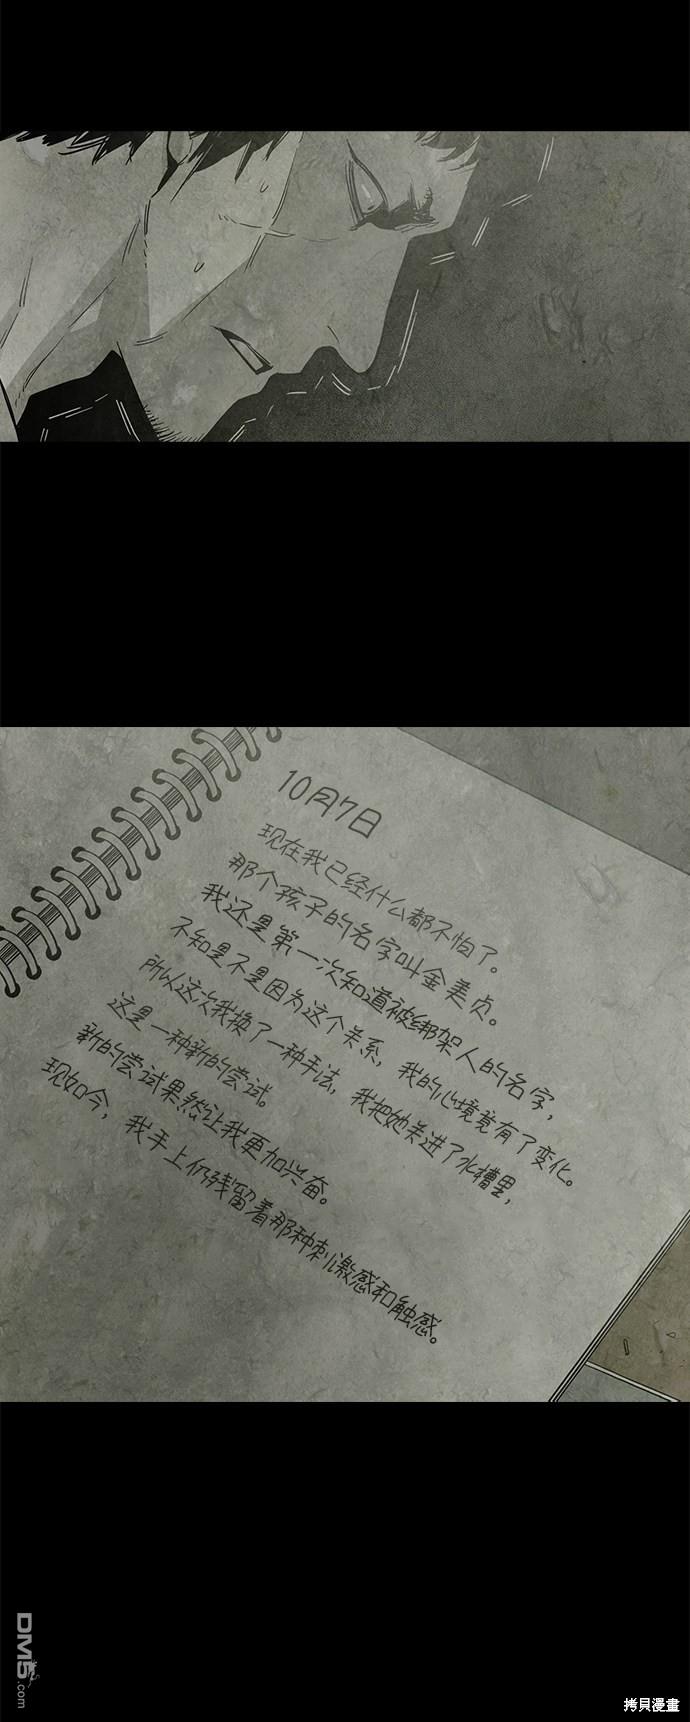 10月7日
现在我已经什么都不怕了。
那个孩子的名字叫金美贞。
我还是第一次知道被绑架人的名字，
不知是不是因为这个关系，我的心境竟有了变化。
所以这次我换了一种手法，我把她关进了水槽里，
这是一种新的尝试。
新的尝试果然让我更加兴奋。
现如今，我手上仍残留着那种刺激感和触感。
DM5.com
拷貝漫畫